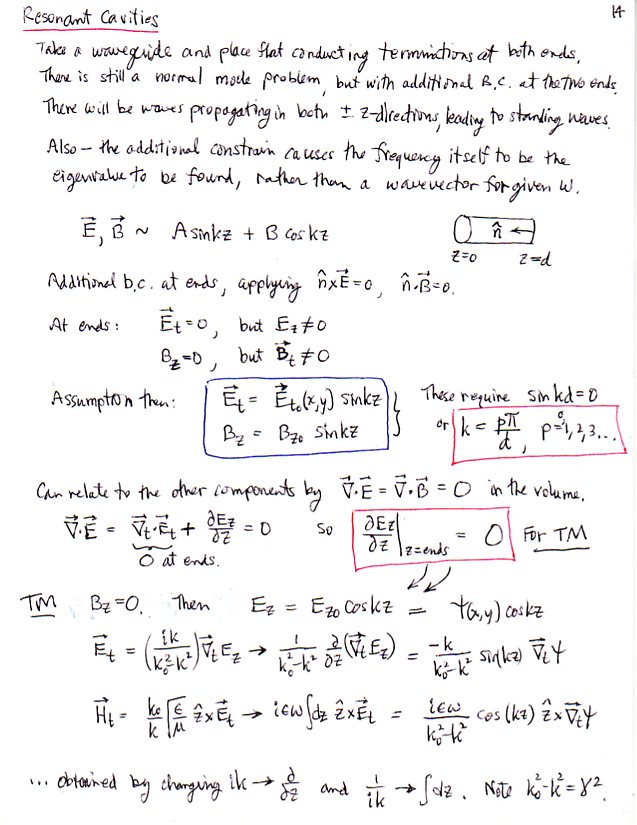 14
Resonant Cavities
Take a waveguide and place flat conducting terminations at both ends.
There is still a normal mode problem, but with additional B.C. at the two ends.
There will be waves propagating in both ± z-directions, leading to standing waves.
Also – the additional constrain causes the frequency itself to be the
eigenvalue to be found, rather than a wavevector for given ω.
E⃗, B⃗ ~ A sinkz + B coskz
n̂ ←
z=0 z=d
Additional b.c. at ends, applying n̂×E⃗=0, n̂·B⃗=0.
At ends: E⃗t=0, but Ez≠0
Bz=0, but B⃗t≠0
Assumption then: E⃗t = E⃗to(x,y) sinkz
Bz = Bzo sinkz
These require sinkd=0
or k = pπ/d, p=0,1,2,3...
Can relate to the other components by ∇⃗·E⃗ = ∇⃗·B⃗ = 0 in the volume.
∇⃗·E⃗ = ∇⃗t·E⃗t + ∂Ez/∂z = 0 so ∂Ez/∂z|z=ends = 0 For TM
0 at ends.
TM Bz=0. Then Ez = Ezo coskz = ψ(x,y) coskz
E⃗t = (ik/(k₀²-k²)) ∇⃗t Ez → 1/(k₀²-k²) ∂/∂z (∇⃗t Ez) = -k/(k₀²-k²) sin(kz) ∇⃗tψ
H⃗t = k₀/k √(ε/μ) ẑ×E⃗t → iεω∫dz ẑ×E⃗t = iεω/(k₀²-k²) cos(kz) ẑ×∇⃗tψ
... obtained by changing ik → ∂/∂z and 1/ik → ∫dz. Note k₀²-k² = γ².